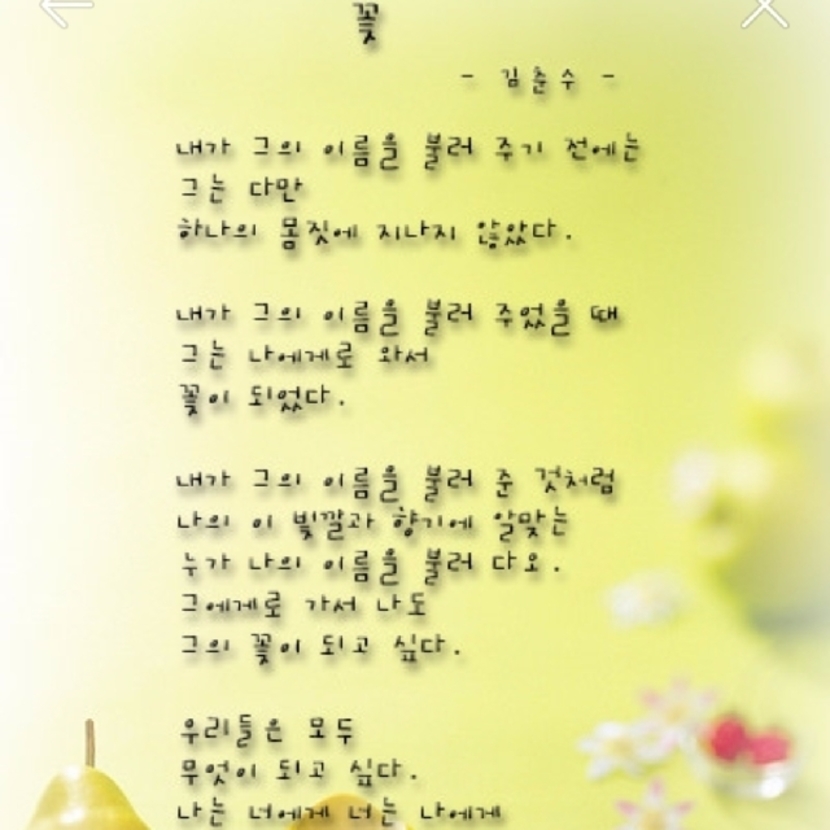 꽃
- 김춘수 -
내가 그의 이름을 불러 주기 전에는
그는 다만
하나의 몸짓에 지나지 않았다.
내가 그의 이름을 불러 주었을 때
그는 나에게로 와서
꽃이 되었다.
내가 그의 이름을 불러 준 것처럼
나의 이 빛깔과 향기에 알맞는
누가 나의 이름을 불러 다오.
그에게로 가서 나도
그의 꽃이 되고 싶다.
우리들은 모두
무엇이 되고 싶다.
나는 너에게 너는 나에게